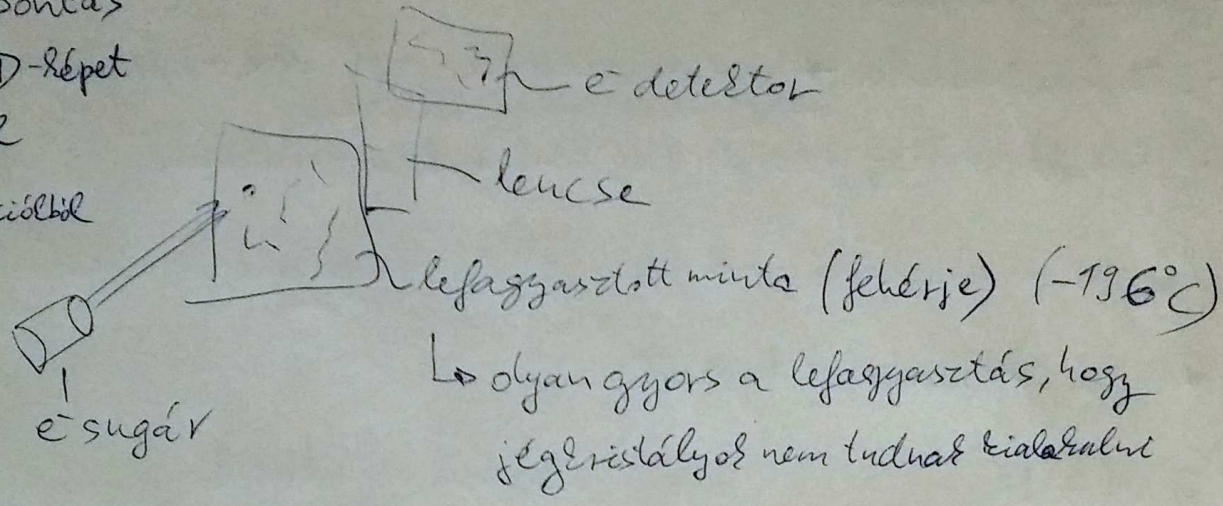 D-képet
e⁻ detektor
lencse
lefagyasztott minta (fehérje) (-196°C)
↳ olyan gyors a lefagyasztás, hogy
jégkristályok nem tudnak kialakulni
e⁻ sugár